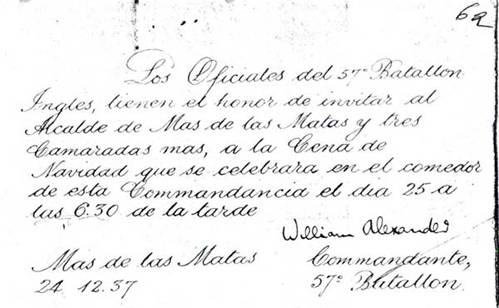 62
Los Oficiales del 57º Batallon
Ingles, tienen el honor de invitar al
Alcalde de Mas de las Matas y tres
Camaradas mas, a la Cena de
Navidad que se celebrara en el comedor
de esta Commandancia el dia 25 a
las 6.30 de la tarde
William Alexander
Mas de las Matas Commandante,
24 12.37 57º Batallon.